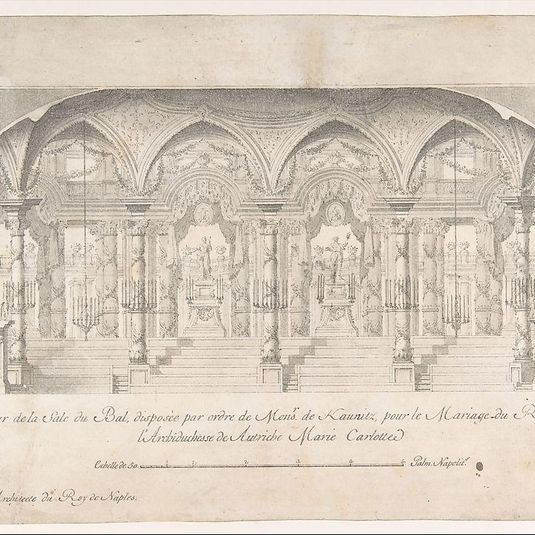 de la Sale du Bal, disposée par ordre de Monsr. de Kaunitz, pour le Mariage du
l'Archiduchesse de Autriche Marie Carlotte
Echelle de 50 Palm. Napolit.
Architecte du Roy de Naples.